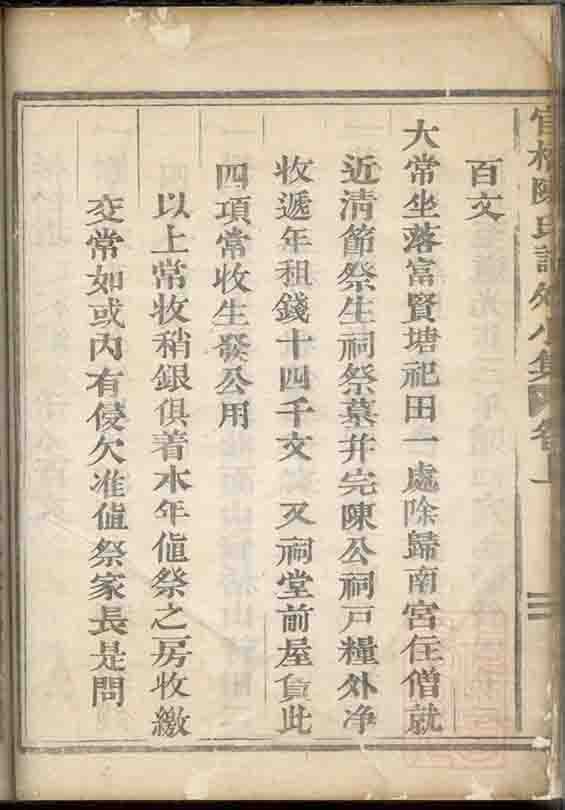 官橋陳氏譜外小集 卷上
百文
大常坐落富賢塘祀田一處除歸南宮住僧就
近清節祭生祠祭墓幷完陳公祠戸糧外净
收遞年租錢十四千文 又祠堂前屋貟此
四項常收生發公用
以上常收稍銀俱着本年值祭之房收繳
交常如或内有侵欠准值祭家長是問